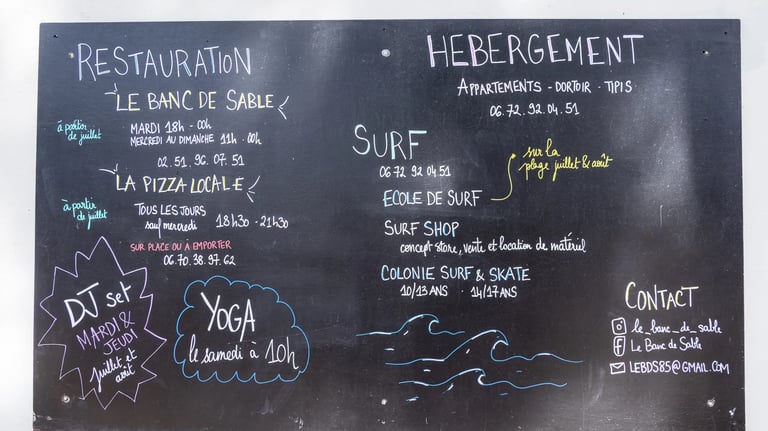 RESTAURATION
LE BANC DE SABLE
à partir
de juillet
MARDI 18h - 00h
MERCREDI AU DIMANCHE 11h - 00h
02. 51. 96. 07. 51
LA PIZZA LOCALE
à partir
de juillet
TOUS LES JOURS
sauf mercredi
18h30 - 21h30
SUR PLACE OU À EMPORTER
06. 70. 38. 97. 62
DJ set
MARDI &
JEUDI
juillet et
août
YOGA
le samedi à 10h
HEBERGEMENT
APPARTEMENTS - DORTOIR - TIPIS
06. 72. 92. 04. 51
SURF
06 72 92 04 51
ECOLE DE SURF
sur la
plage juillet & août
SURF SHOP
concept store, vente et location de matériel
COLONIE SURF & SKATE
10/13 ANS · 14/17 ANS
CONTACT
le_banc_de_sable
Le Banc de Sable
LEBDS85@GMAIL.COM